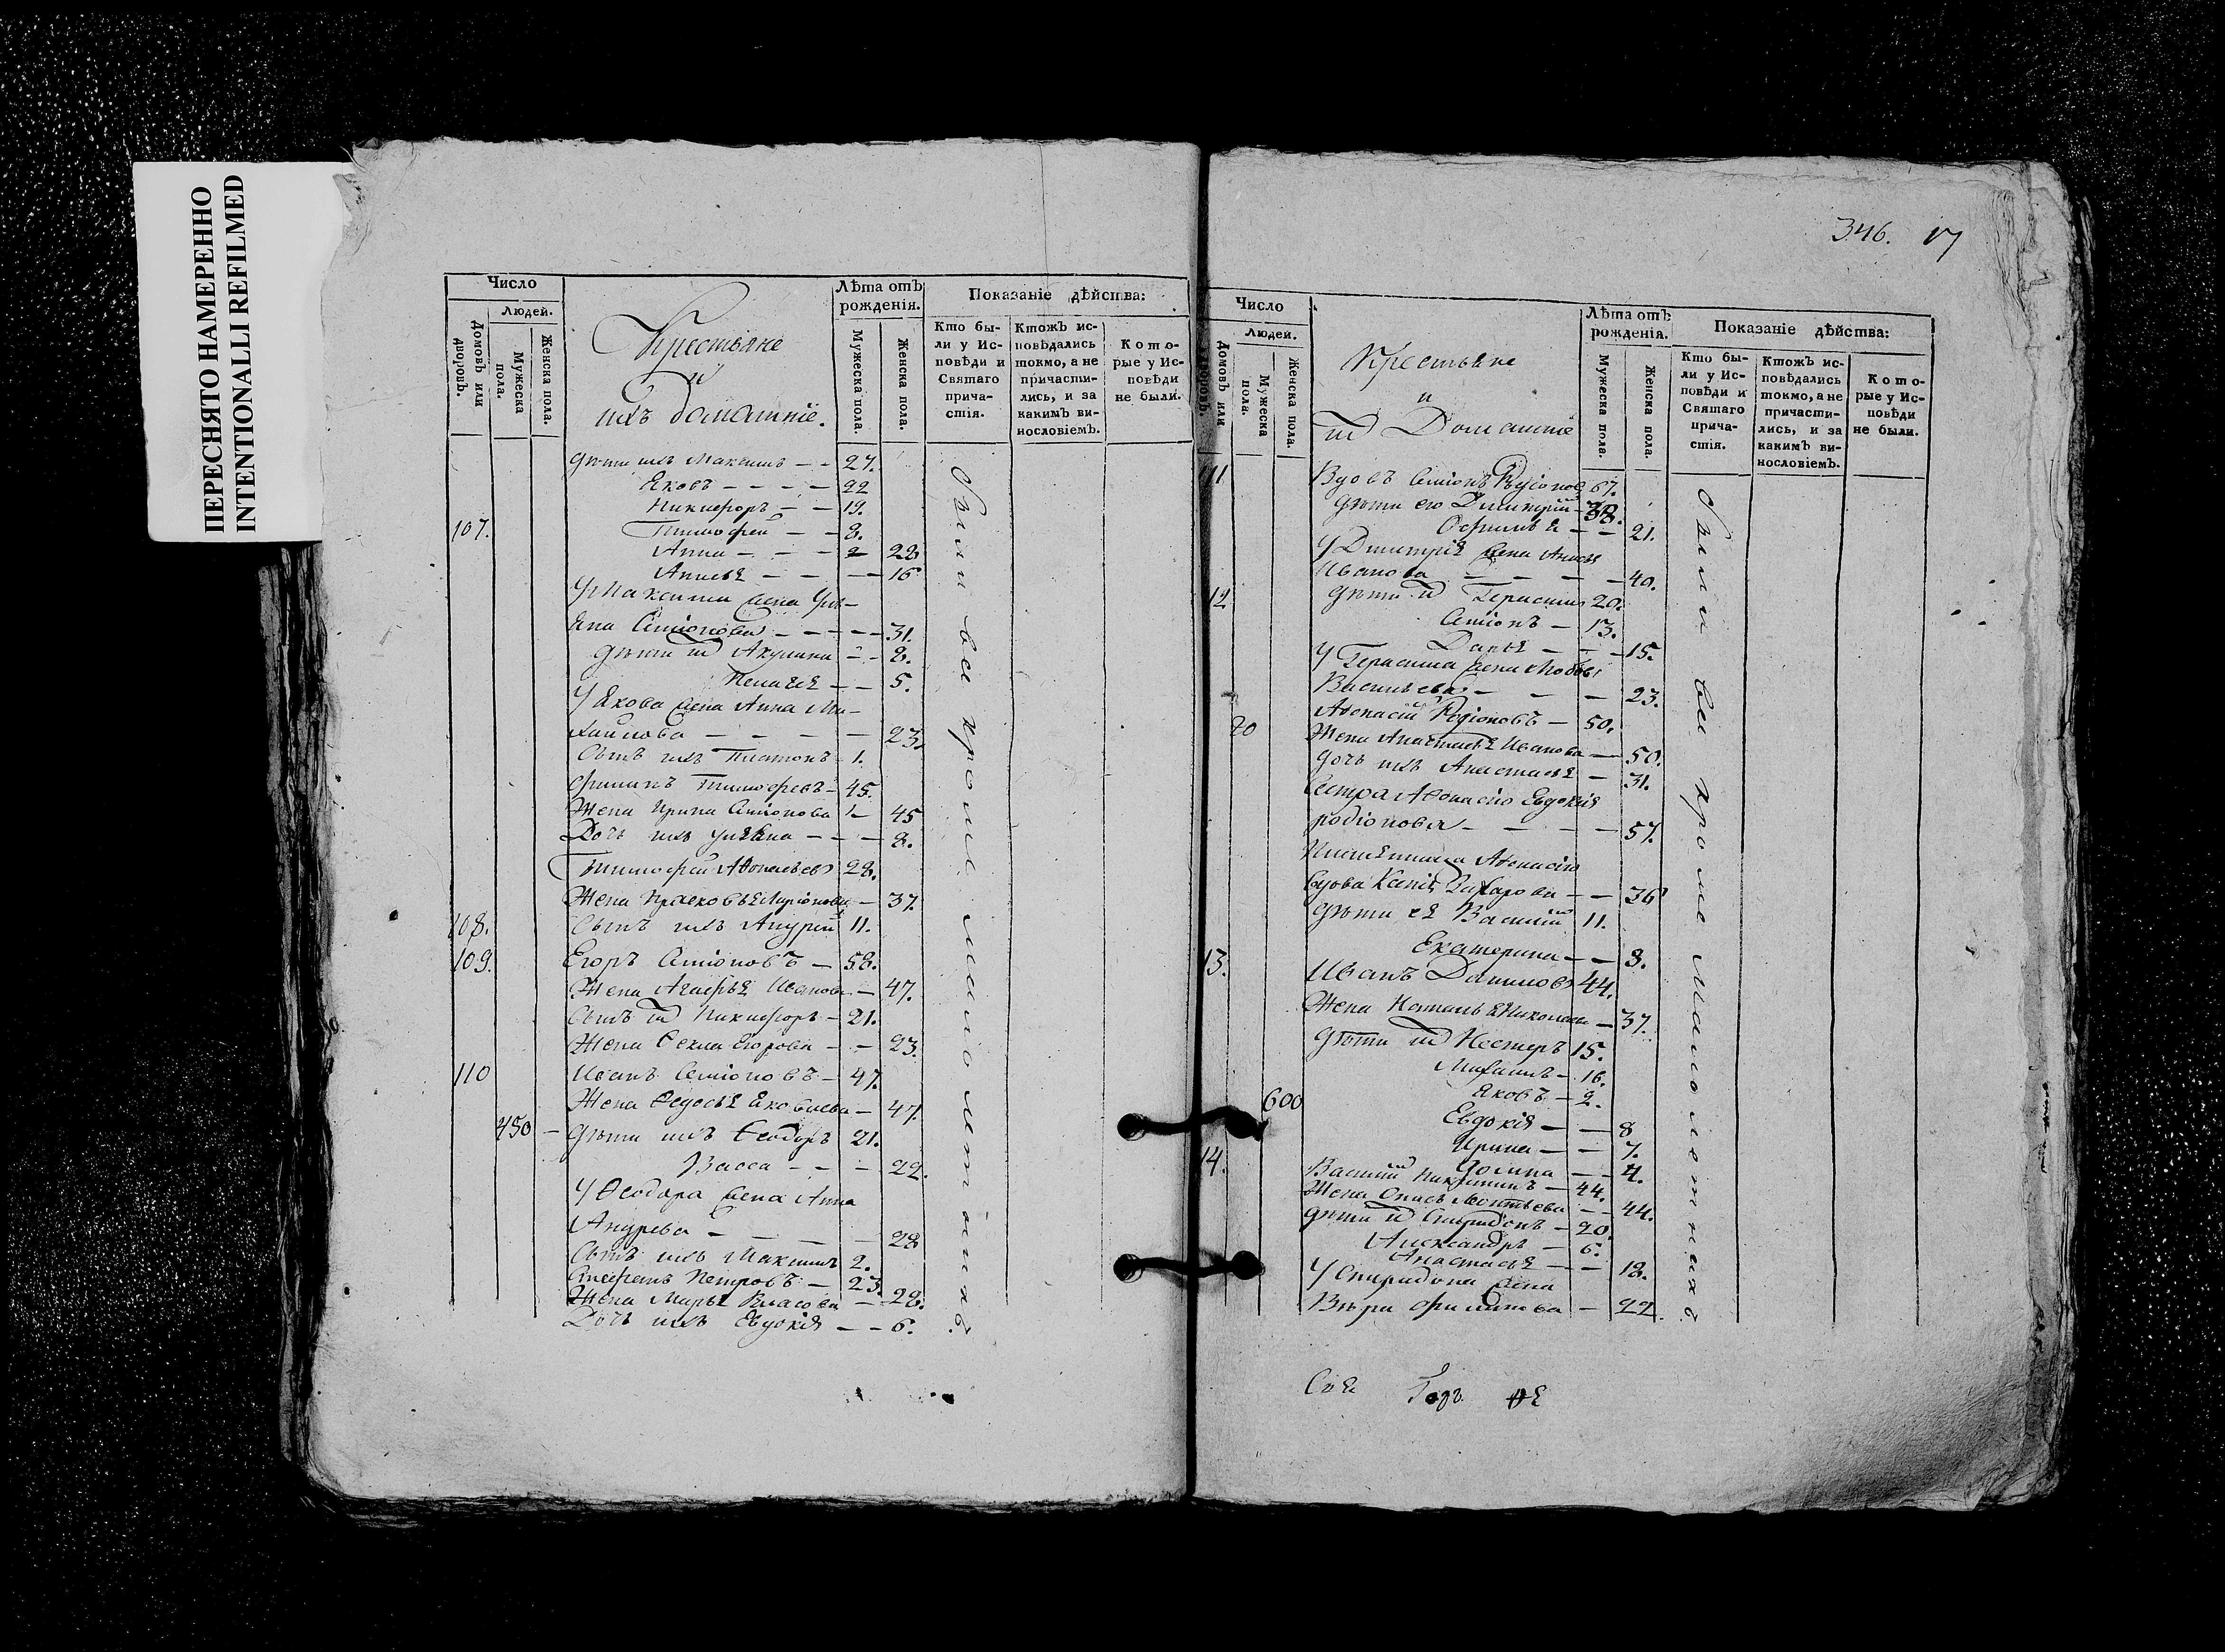 ПЕРЕСНЯТО НАМЕРЕННО
INTENTIONALLI REFILMED
Число
Людей.
Домовъ или дворовъ.
Мужеска пола.
Женска пола.
Крестьяне
и
ихъ домашніе.
Лѣта отъ рожденія.
Мужеска пола.
Женска пола.
Показаніе дѣйства:
Кто бы-
ли у Ис-
повѣди и
Святаго
прича-
стія.
Ктожъ ис-
повѣдались
токмо, а не
причасти-
лись, и за
какимъ ви-
нословіемъ.
Кото-
рые у Ис-
повѣди
не были.
дѣти ихъ Максимъ - - 27.
Яковъ - - - - 22
Никифоръ - - 19.
107. Тимофей - - 8.
Анна - - - 28
Анисья - - - 16
У Максима жена Улья-
на Семіонова - - - - 31.
дѣти их Акулина - - 8.
Пелагея - - 5.
У Якова жена Анна Ми-
хайлова - - - - 23.
Сынъ ихъ Платонъ - 1.
Филипъ Тимофеевъ - 45.
Жена Ирина Семіонова - 45
Дочь ихъ Ульяна - - - 8.
Тимофей 28.
Жена Прасковья Ларіонова - 37.
108. Сынъ ихъ Андрей 11.
109. Егоръ Семіоновъ - 58.
Жена Агафья Иванова - 47.
Сынъ их Никифоръ - 21.
Жена Фекла Егорова - - 23.
110 Иванъ Семіоновъ - 47.
Жена Ѳедосья Яковлева - 47.
450 - Дѣти ихъ Ѳеодоръ 21.
Васса - - - 22.
У Ѳеодора жена Анна
Андрева - - - - 28
Сынъ ихъ Максимъ 2.
Петровъ - 23.
Жена Марья Власова - 28.
Дочь ихъ Евдокія - - 6.
Были все кроме малолѣтнихъ.
346. 17
Число
Людей.
Домовъ или дворовъ.
Мужеска пола.
Женска пола.
Крестьяне
и
их Домашніе
Лѣта отъ рожденія.
Мужеска пола.
Женска пола.
Показаніе дѣйства:
Кто бы-
ли у Ис-
повѣди и
Святаго
прича-
стія.
Ктожъ ис-
повѣдались
токмо, а не
причасти-
лись, и за
какимъ ви-
нословіемъ.
Кото-
рые у Ис-
повѣди
не были.
111 Вдовъ Семіонъ Родіонов 67.
Дѣти его Димитрій - 38.
21.
У Дмитрія жена Анисья
Иванова - - - - 40.
12 Дѣти их Герасимъ 20.
Семіонъ - 13.
Дарья - - - 15.
У Герасима жена Любовь
Васильева - - - 23.
Аѳонасій Родіоновъ - 50.
70 Жена Анастасья Иванова - 50.
дочь ихъ Анастасья - 31.
Сестра Аѳонасію Евдокія
родіонова - - - - 57.
Племянница Аѳонасію
вдова Ксенія Захарова - - 36
Дѣти ея Василій 11.
Екатерина - - 8.
13. Иванъ Даниловъ 44.
Жена Наталья Николаева - 37.
Дѣти их Нестеръ 15.
Михаилъ - 16.
600 Яковъ - 2.
Евдокія - - 8
Ирина - - 7.
- - 4.
14. Василій Никитинъ - 44.
Жена - - 44.
дѣти их Спиридонъ - 20.
Александръ - 6.
Анастасья - - 18.
У Спиридона жена
Вѣра Филипова - 22.
Были все кроме малолѣтнихъ.